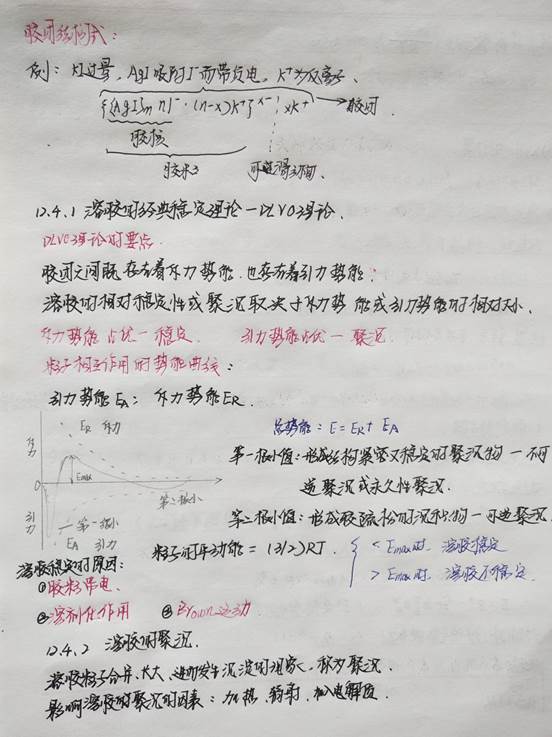 胶团结构式：
例：KI过量，AgI吸附I⁻而带负电，K⁺为反离子、
{[AgI]m nI⁻·(n-x)K⁺}ˣ⁻ xK⁺ → 胶团
胶核
胶粒 可
12.4.1 溶胶的经典稳定理论—DLVO理论、
DLVO理论的要点
胶团之间既存在着斥力势能，也存在着引力势能；
溶胶的相对稳定性或聚沉取决于斥力势能或引力势能的相对大小、
斥力势能占优—稳定、 引力势能占优—聚沉
粒子相互作用的势能曲线：
引力势能EA： 斥力势能ER、
总势能：E=ER+EA
ER 斥力
斥力
第一极小值：形成结构紧密又稳定的聚沉物—不可
逆聚沉或永久性聚沉、
Emax
0
第二极小
引力
第一极小
EA 引力
第二极小值：形成较疏松的沉积物—可逆聚沉
粒子的平动能=(3/2)RT、
<Emax时 溶胶稳定
>Emax时 溶胶不稳定、
溶胶稳定的原因：
①胶粒带电、
②溶剂化作用 ③Brown运动
12.4.2 溶胶的聚沉、
溶胶粒子合并、长大，进而发生沉淀的现象，称为聚沉
影响溶胶的聚沉的因素：加热、辐射、加入电解质